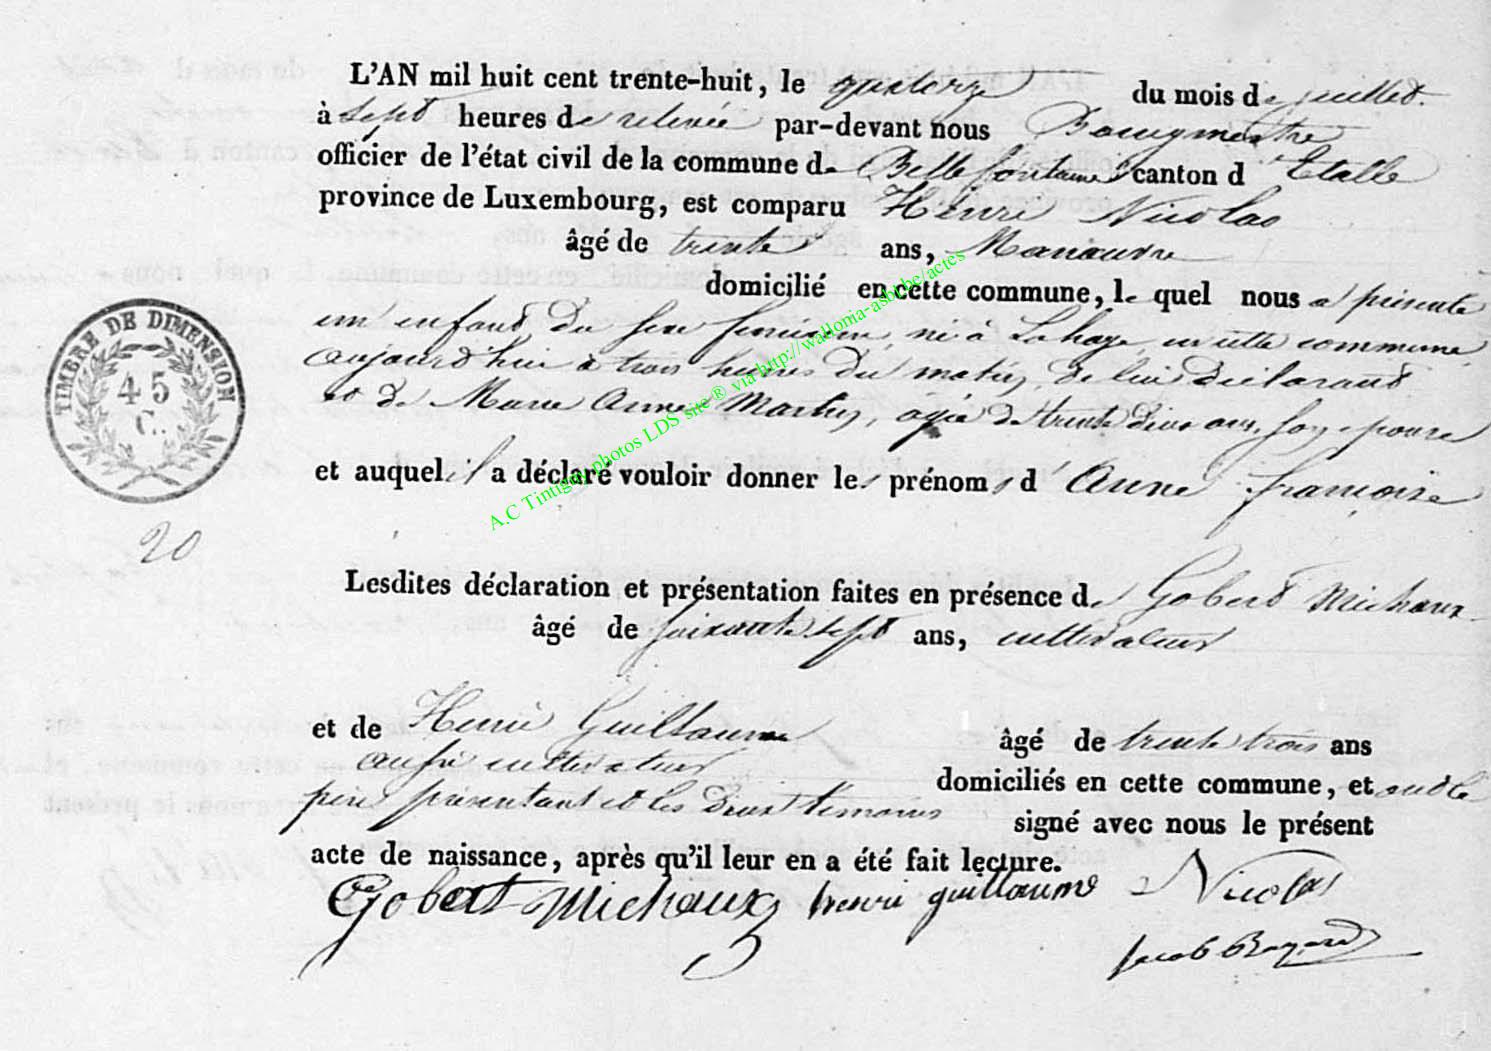 L'AN mil huit cent trente-huit, le quatorze du mois de juillet.
à sept heures de relevée par-devant nous Bourgmestre
officier de l'état civil de la commune de Bellefontaine canton d'Etalle
province de Luxembourg, est comparu Henri Nicolas
âgé de trente ans, Manœuvre
domicilié en cette commune, le quel nous a présenté
un enfant du sexe féminin, né à Lahage, en cette commune,
aujourd'hui à trois heures du matin, de lui déclarant
et de Marie Anne Martin, agée de trente deux ans, son epouse
et auquel il a déclaré vouloir donner les prénoms d Anne françoise
Lesdites déclaration et présentation faites en présence de Gobert Michaux
âgé de soixante sept ans, cultivateur
et de Henri Guillaume âgé de trente trois ans
aussi cultivateur
domiciliés en cette commune, et ont le
père présentant et les deux temoins signé avec nous le présent
acte de naissance, après qu'il leur en a été fait lecture.
Gobert Michaux henri guillaume Nicolas
Jacob
TIMBRE DE DIMENSION
45
C.
20
A.C Tintigny photos LDS site ® via http://wallonia-asbl.be/actes